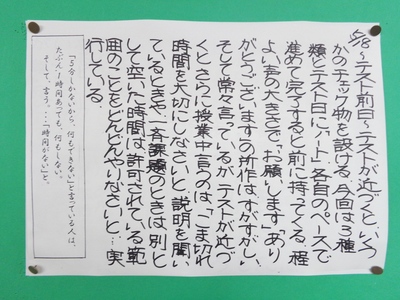 5/18〜テスト前日〜テストが近づくと、いくつ
かのチェック物を設ける。今回は3種
類とテスト日にノート。各自のペースで
進めて完了すると前に持ってくる。程
よい声の大きさで「お願いします」「あり
がとうございます」の所作はすがすがしい。
そして常々言っているが、テストが近づ
くと、さらに授業中言うのは、「こま切れ
時間を大切にしなさい」と。説明を聞い
ているときや、一斉課題のときは別と
して空いた時間は許可されている範
囲のことをどんどんやりなさいと…。実
行している。
「5分しかないから、何もできない」と言っている人は、
たぶん1時間あっても、何もしない。
そして、言う。…「時間がない」と。